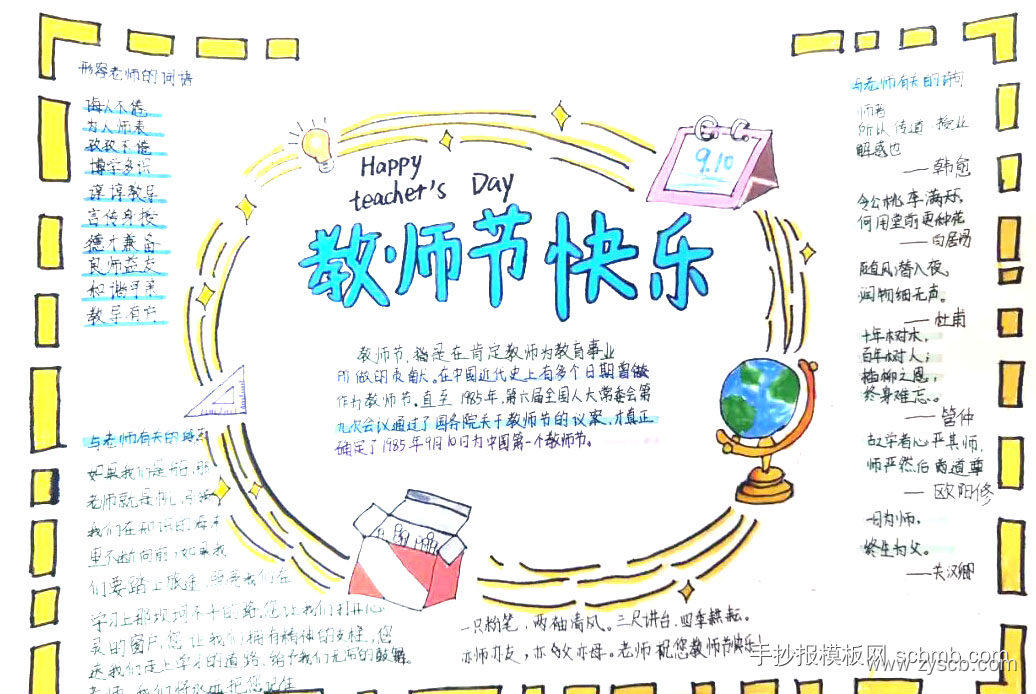 形容老师的词语
诲人不倦
为人师表
孜孜不倦
博学多识
谆谆教导
言传身授
德才兼备
良师益友
和谐可亲
教导有方
Happy
teacher's Day
教师节快乐
9.10
教师节,
是在肯定教师为教育事业
所做的贡献。在中国近代史上有多个日期曾做
作为教师节。直至1985年,第六届全国人大常委会第
九次会议通过了国务院关于教师节的议案,才真正
确定了1985年9月10日为中国第一个教师节。
与老师有关的诗句
师者
所以传道 授业
解惑也
——韩愈
令公桃李满天下,
何用堂前更种花
——白居易
随风潜入夜,
润物细无声。
——杜甫
十年树木,
百年树人;
插柳之恩,
终身难忘。
——管仲
古之学者必严其师,
师严然后道尊
——欧阳修
一日为师,
终生为父。
——关汉卿
与老师有关的
如果我们是船,那
老师就是帆,引领
我们在知识的海洋
里不断向前;如果我
们要踏上旅途,
我们在
学习上那坎坷不平的路。您让我们打开心
灵的窗户,您让我们拥有精神的支柱,您
送我们走上学习的道路,给予我们无穷的鼓舞。
老师,我们将永远把您记住
一只粉笔,两袖清风。三尺讲台,四季耕耘。
亦师亦友,亦父亦母。老师祝您教师节快乐!
手抄报模板网 scbmb.com
www.zyscb.com